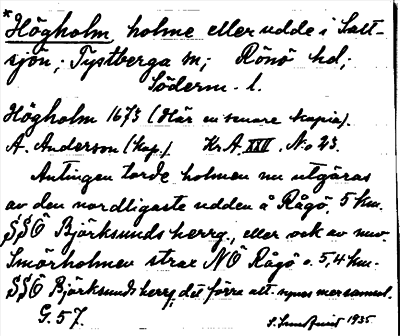 *Högholm, holme eller udde i Salt-
sjön; Tystberga sn; Rönö hd;
Söderm. l.
Högholm 1673 (Här en senare kopia).
A. Anderson (kop.) Kr A XXII. No 23.
Antingen torde holmen nu utgöras
av den nordligaste udden å Rågö, 5 km.
SSÖ Björksunds herrg, eller ock av nuv.
Smörholmen strax NÖ Rågö o. 5,4 km.
SSÖ Björksunds herrg; det förra alt. synes mer sannol.
G. 57. 1935